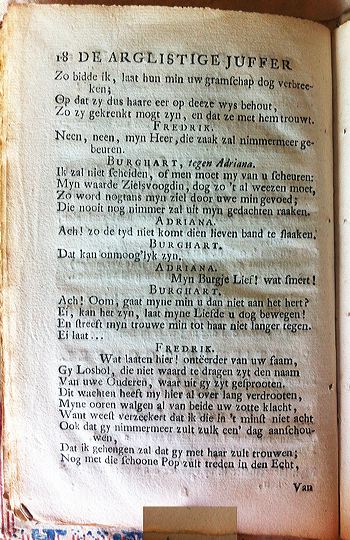 18 DE ARGLISTIGE JUFFER
Zo bidde ik, laat hun min uw gramschap dog verbree-
ken;
Op dat zy dus haare eer op deeze wys behout,
Zo zy gekrenkt mogt zyn, en dat ze met hem trouwt.
FREDRIK.
Neen, neen, myn Heer, die zaak zal nimmermeer ge-
beuren.
BURGHART, tegen Adriana.
Ik zal niet scheiden, of men moet my van u scheuren:
Myn waarde Zielsvoogdin, dog zo 't al weezen moet,
Zo word nogtans myn ziel door uwe min gevoed;
Die nooit nog nimmer zal uit myn gedachten raaken.
ADRIANA.
Ach! zo de tyd niet komt dien lieven band te slaaken.
BURGHART.
Dat kan onmoog'lyk zyn.
ADRIANA.
Myn Burgje Lief! wat smert!
BURGHART.
Ach! Oom, gaat myne min u dan niet aan het hert?
Ei, kan het zyn, laat myne Liefde u dog bewegen!
En streeft myn trouwe min tot haar niet langer tegen.
Ei laat...
FREDRIK.
Wat laaten hier! onteerder van uw faam,
Gy Losbol, die niet waard te dragen zyt den naam
Van uwe Ouderen, waar uit gy zyt gesprooten.
Dit wachten heeft my hier al over lang verdrooten,
Myne ooren walgen al van beide uw zotte klacht,
Want weest verzeekert dat ik die in 't minst niet acht
Ook dat gy nimmermeer zult zulk een' dag aanschou-
wen,
Dat ik gehengen zal dat gy met haar zult trouwen;
Nog met die schoone Pop zult treden in den Echt,
Van